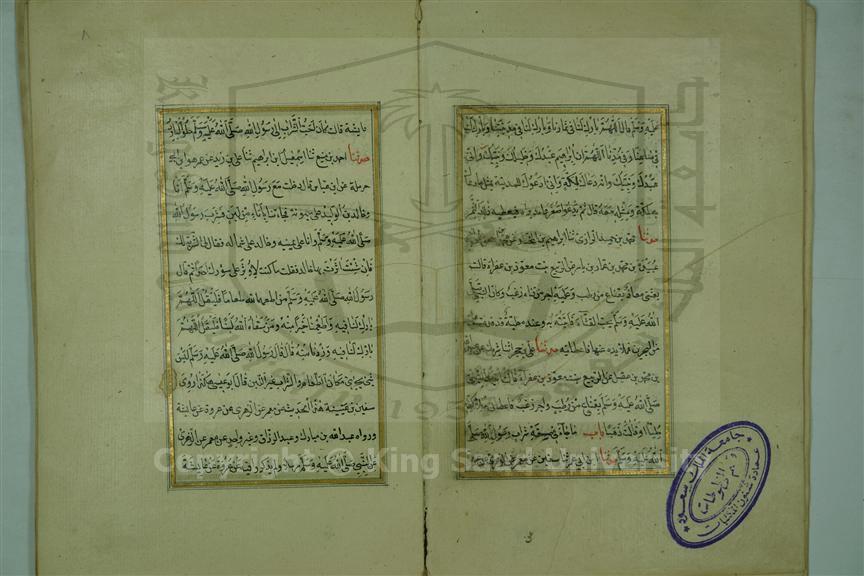 عليه وسلم قال اللهم بارك لنا في ثمارنا وبارك لنا في مدينتنا وبارك لنا
في صاعنا وفي مدنا اللهم ان ابراهيم عبدك وخليلك ونبيك واني
عبدك ونبيك وانه دعاك لمكة واني ادعوك للمدينة بمثل ما دعاك
به لمكة ومثله معه قال ثم يدعو اصغر وليد يراه فيعطيه ذلك الثمر
حدثنا محمد بن حميد الرازي ثنا ابراهيم بن المختار عن محمد بن اسحق عن ابي
عبيدة بن محمد بن عمار بن ياسر عن الربيع بنت معوذ بن عفراء قالت
بعثني معاذ بقناع من رطب وعليه اجر من قثاء زغب وكان النبي صلى
الله عليه وسلم يحب القثاء فاتيته به وعنده حلية قد قدمت عليه
من البحرين فملأ يده منها فاعطانيه حدثنا علي بن حجر انا شريك عن عبد الله
بن محمد بن عقيل عن الربيع بنت معوذ بن عفراء قالت اتيت النبي
صلى الله عليه وسلم بقناع من رطب واجر زغب فاعطاني ملأ كفه
حليا او قالت ذهبا باب ما جاء في صفة شراب رسول الله صلى
الله عليه وسلم حدثنا ابن ابي عمر ثنا سفين عن معمر عن الزهري عن عروة
عايشة قالت كان احب الشراب الى رسول الله صلى الله عليه وسلم الحلو البارد
حدثنا احمد بن منيع ثنا اسمعيل بن ابراهيم ثنا علي بن زيد عن عمر هو ابن ابي
حرملة عن ابن عباس قال دخلت مع رسول الله صلى الله عليه وسلم انا
وخالد بن الوليد على ميمونة فجاءتنا باناء من لبن فشرب رسول الله
صلى الله عليه وسلم وانا على يمينه وخالد على شماله فقال لي الشربة لك
فان شئت اثرت بها خالدا فقلت ما كنت لاوثر على سؤرك احدا ثم قال
رسول الله صلى الله عليه وسلم من اطعمه الله طعاما فليقل اللهم
بارك لنا فيه واطعمنا خيرا منه ومن سقاه الله لبنا فليقل اللهم
بارك لنا فيه وزدنا منه قال قال رسول الله صلى الله عليه وسلم ليس
شيء يجزي مكان الطعام والشراب غير اللبن قال ابو عيسى هكذا روى
سفين بن عيينة هذا الحديث عن معمر عن الزهري عن عروة عن عايشة
ورواه عبد الله بن مبارك وعبد الرزاق وغير واحد عن معمر عن الزهري
عن النبي صلى الله عليه وسلم مرسلا ولم يذكروا فيه عن عروة عن عايشة
جامعة الملك سعود
عمادة شئون المكتبات
قسم المخطوطات
Copyright © King Saud University
1957